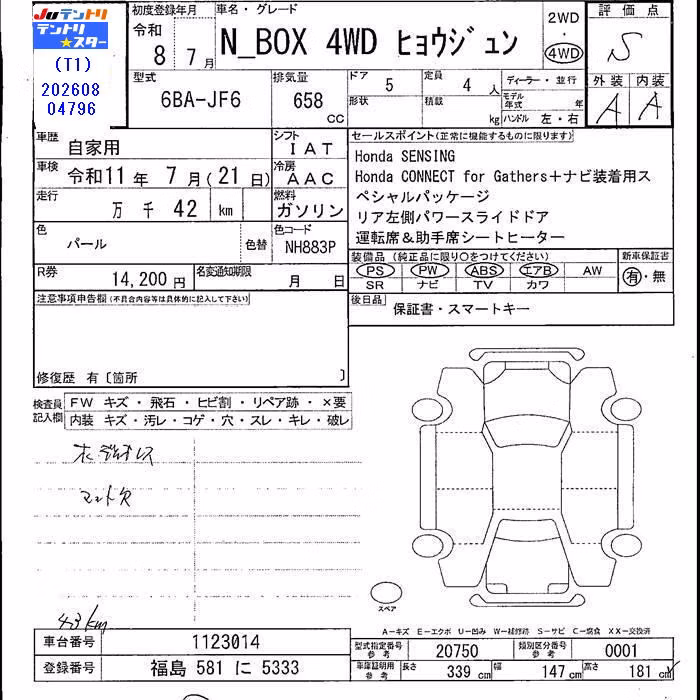 Juテントリ
テントリ
★スター
(T1)
202608
04796
初度登録年月
令和
8 年 7 月
車名・グレード
N_BOX 4WD ヒョウジュン
2WD
・
4WD
評価点
S
外装 内装
A A
型式
6BA-JF6
排気量
658
CC
ドア
5
定員
4 人
形状
積載
kg
ディーラー・並行
モデル年式 年
ハンドル 左・右
車歴
自家用
シフト
I A T
車検
令和11 年 7 月(21 日)
冷房
A A C
走行
万 千 42 km
燃料
ガソリン
色
パール
色替
色コード
NH883P
R券
14,200 円
名変通知期限
月 日
セールスポイント(正常に機能するものに限ります)
Honda SENSING
Honda CONNECT for Gathers+ナビ装着用ス
ペシャルパッケージ
リア左側パワースライドドア
運転席&助手席シートヒーター
装備品 (純正品に限り〇をつけてください)
PS PW ABS エアB AW
SR ナビ TV カワ
新車保証書
有・無
後日品
保証書・スマートキー
注意事項申告欄(不具合内容等は具体的に記入して下さい)
修復歴 有〔箇所 〕
検査員
記入欄
FW キズ・飛石・ヒビ割・リペア跡・×要
内装 キズ・汚レ・コゲ・穴・スレ・キレ・破レ
マット欠
43km
スペア
A－キズ E－エクボ U－凹み W－補修跡 S－サビ C－腐食 XX－交換済
車台番号
1123014
登録番号
福島 581 に 5333
型式指定番号
参考
20750
類別区分番号
参考
0001
車庫証明用
参考
長さ 339 cm 幅 147 cm 高さ 181 cm